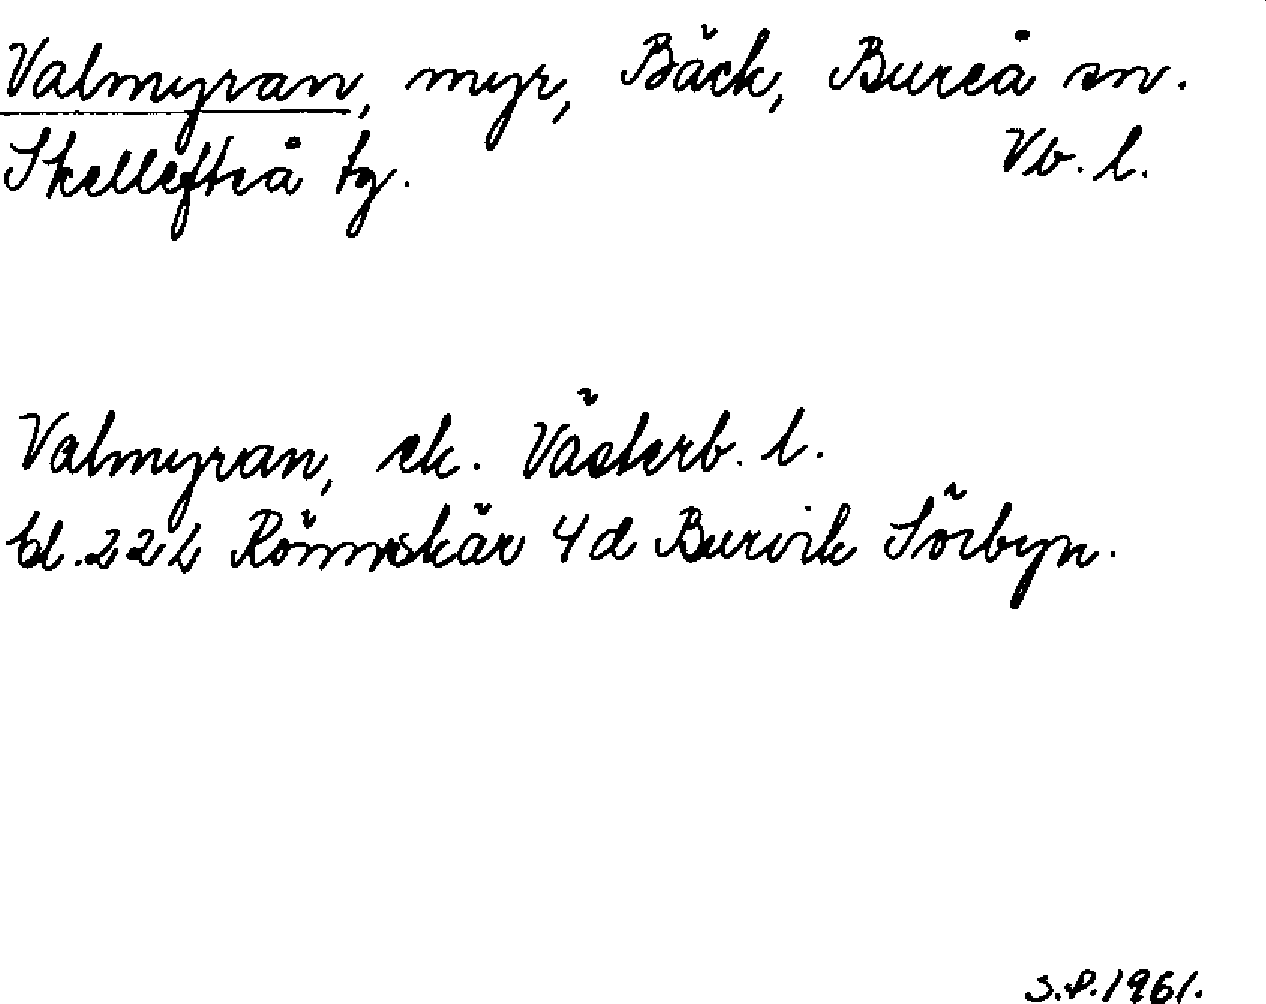 Valmyran, myr, Bäck, Bureå sn.
Skellefteå tg. Vb. l.
Valmyran, ek. Västerb. l.
bl. 22L Rönnskär 4d Burvik Sörbyn.
S.P. 1961.